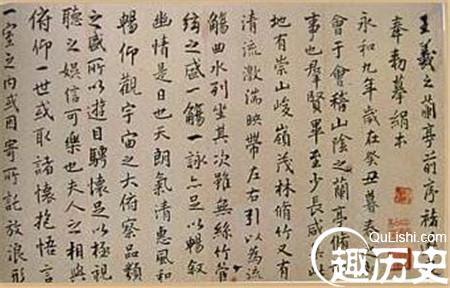 王羲之蘭亭前序褚
奉勅摹絹本
永和九年歲在癸丑暮春
會于會稽山陰之蘭亭脩
事也羣賢畢至少長咸
地有崇山峻嶺茂林脩竹又有
清流激湍映帶左右引以為流
觴曲水列坐其次雖無絲竹管
絃之盛一觴一詠亦足以暢叙
幽情是日也天朗氣清惠風和
暢仰觀宇宙之大俯察品類
之盛所以遊目騁懷足以極視
聽之娛信可樂也夫人之相與
俯仰一世或取諸懷抱悟言
一室之內或因寄所託放浪形
QuLiShi.com
趣历史